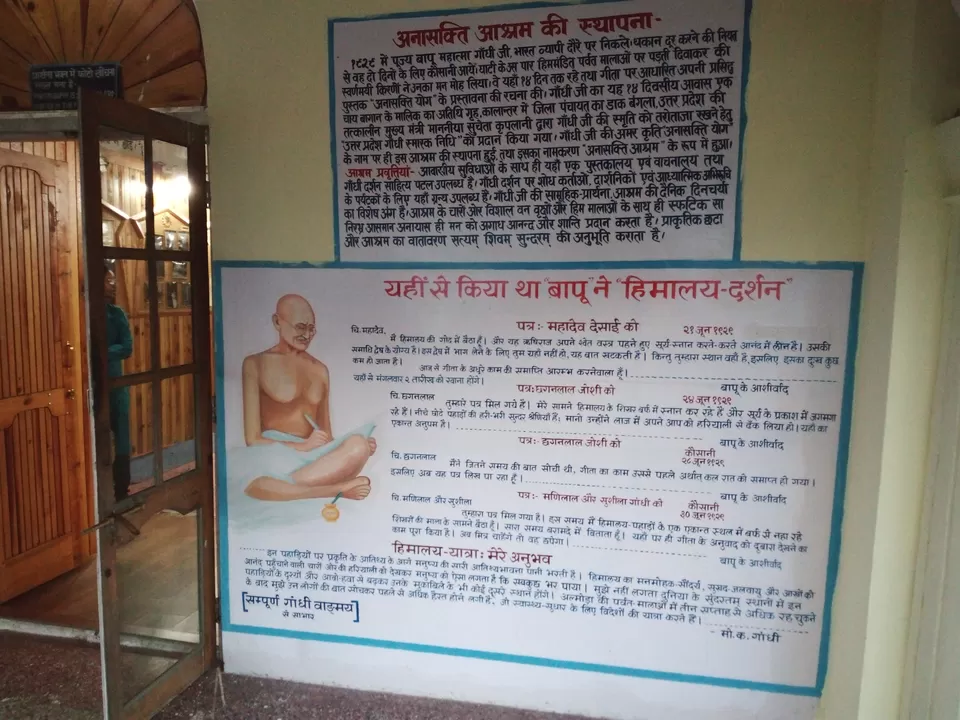 अनासक्ति आश्रम की स्थापना-
१९२९ में पूज्य बापू महात्मा गाँधी जी, भारत व्यापी दौरे पर निकले। थकान दूर करने की लिए
से वह दो दिनों के लिए कौसानी आये। घाटी के उस पार हिममंडित पर्वत मालाओं पर पड़ती दिवाकर की
स्वर्णमयी किरणों ने उनका मन मोह लिया। वे यहाँ १४ दिन तक रहे तथा गीता पर आधारित अपनी प्रसिद्ध
पुस्तक "अनासक्ति योग" के प्रस्तावना की रचना की। गाँधी जी का यह १४ दिवसीय आवास एक
चाय बागान के मालिक का अतिथि गृह, कालान्तर में जिला पंचायत का डाक बंगला, उत्तर प्रदेश की
तत्कालीन मुख्य मंत्री माननीया सुचेता कृपलानी द्वारा गाँधी जी की स्मृति को तरोताजा रखने हेतु
"उत्तर प्रदेश गाँधी स्मारक निधि" को प्रदान किया गया। गाँधी जी की अमर कृति "अनासक्ति योग"
के नाम पर ही इस आश्रम की स्थापना हुई, तथा इसका नामकरण "अनासक्ति आश्रम" के रूप में हुआ।
आश्रम प्रवृतियां- आवासीय सुविधाओं के साथ ही यहाँ एक पुस्तकालय एवं वाचनालय तथा
गाँधी दर्शन साहित्य पटल उपलब्ध है। गाँधी दर्शन पर शोध कर्ताओं, दार्शनिकों एवं आध्यात्मिक अभिरूचि
के पर्यटकों के लिए यहाँ ग्रन्थ उपलब्ध हैं। गाँधी जी की सामूहिक-प्रार्थना, आश्रम की दैनिक दिनचर्या
का विशेष अंग है। आश्रम के चारों ओर विशाल वन वृक्षों और हिम मालाओं के साथ ही स्फटिक सा
निरभ्र आसमान अनायास ही मन को अगाध आनन्द और शान्ति प्रदान करता है। प्राकृतिक छटा
और आश्रम का वातावरण सत्यम् शिवम् सुन्दरम् की अनुभूति कराता है।
यहीं से किया था "बापू" ने "हिमालय-दर्शन"
पत्र:- महादेव देसाई को २१ जून १९२९
चि. महादेव,
मैं हिमालय की गोद में बैठा हूँ। और यह ऋषिराज अपने श्वेत वस्त्र पहने हुए सूर्य-स्नान करते-करते आनंद में लीन है। उसकी
समाधि द्वेष के योग्य है। इस द्वेष में भाग लेने के लिए तुम यहाँ नहीं हो, यह बात खटकती है। किन्तु तुम्हारा स्थान वहीं है, इसलिए इसका दुःख कुछ
कम हो जाता है।
आज से गीता के अधूरे काम की समाप्ति आरम्भ करनेवाला हूँ।
यहाँ से मंगलवार २ तारीख को रवाना होंगे। बापू के आशीर्वाद
पत्र: छगनलाल जोशी को २४ जून १९२९
चि. छगनलाल
तुम्हारे पत्र मिल गये हैं। मेरे सामने हिमालय के शिखर बर्फ में स्नान कर रहे हैं और सूर्य के प्रकाश में जगमगा
रहे हैं। नीचे छोटे पहाड़ों की हरी-भरी सुन्दर श्रेणियाँ हैं, मानो उन्होंने लाज में अपने आप को हरियाली से ढँक लिया हो। यहाँ का
एकान्त अनुपम है। बापू के आशीर्वाद
पत्र: छगनलाल जोशी को कौसानी
२८ जून १९२९
चि. छगनलाल
मैंने जितने समय की बात सोची थी, गीता का काम उससे पहले अर्थात् कल रात को समाप्त हो गया।
इसलिए अब यह पत्र लिख पा रहा हूँ। बापू के आशीर्वाद
पत्र:- मणिलाल और सुशीला गाँधी को कौसानी
३० जून १९२९
चि. मणिलाल और सुशीला
तुम्हारा पत्र मिल गया है। इस समय मैं हिमालय-पहाड़ों के एक एकान्त स्थल में बर्फ से नहा रहे
शिखरों की माला के सामने बैठा हूँ। सारा समय बरामदे में बिताता हूँ। यहाँ पर ही गीता के अनुवाद को दुबारा देखने का
काम पूरा किया है। अब मित्र चाहेंगे तो वह छपेगा। बापू के आशीर्वाद
हिमालय-यात्रा: मेरे अनुभव
इन पहाड़ियों पर प्रकृति के आतिथ्य के आगे मनुष्य की सारी आतिथ्यभावना पानी भरती है। हिमालय का मनमोहक सौंदर्य, सुखद-जलवायु और आखों को
आनंद पहुँचाने वाली चारों ओर की हरियाली को देखकर मनुष्य को ऐसा लगता है कि सबकुछ भर पाया। मुझे नहीं लगता दुनिया के सुंदरतम स्थानों में इन
पहाड़ियों के दृश्यों और आबो-हवा से बढ़कर उनके मुकाबिले के भी कोई दूसरे स्थान होंगे। अल्मोड़ा की पर्वत-मालाओं में तीन सप्ताह से अधिक रह चुकने
के बाद मुझे उन लोगों की बात सोचकर पहले से अधिक हैरत होने लगी है, जो स्वास्थ्य-सुधार के लिए विदेशों की यात्रा करते हैं।
- मो. क. गाँधी
[सम्पूर्ण गाँधी वाङ्मय]
से साभार